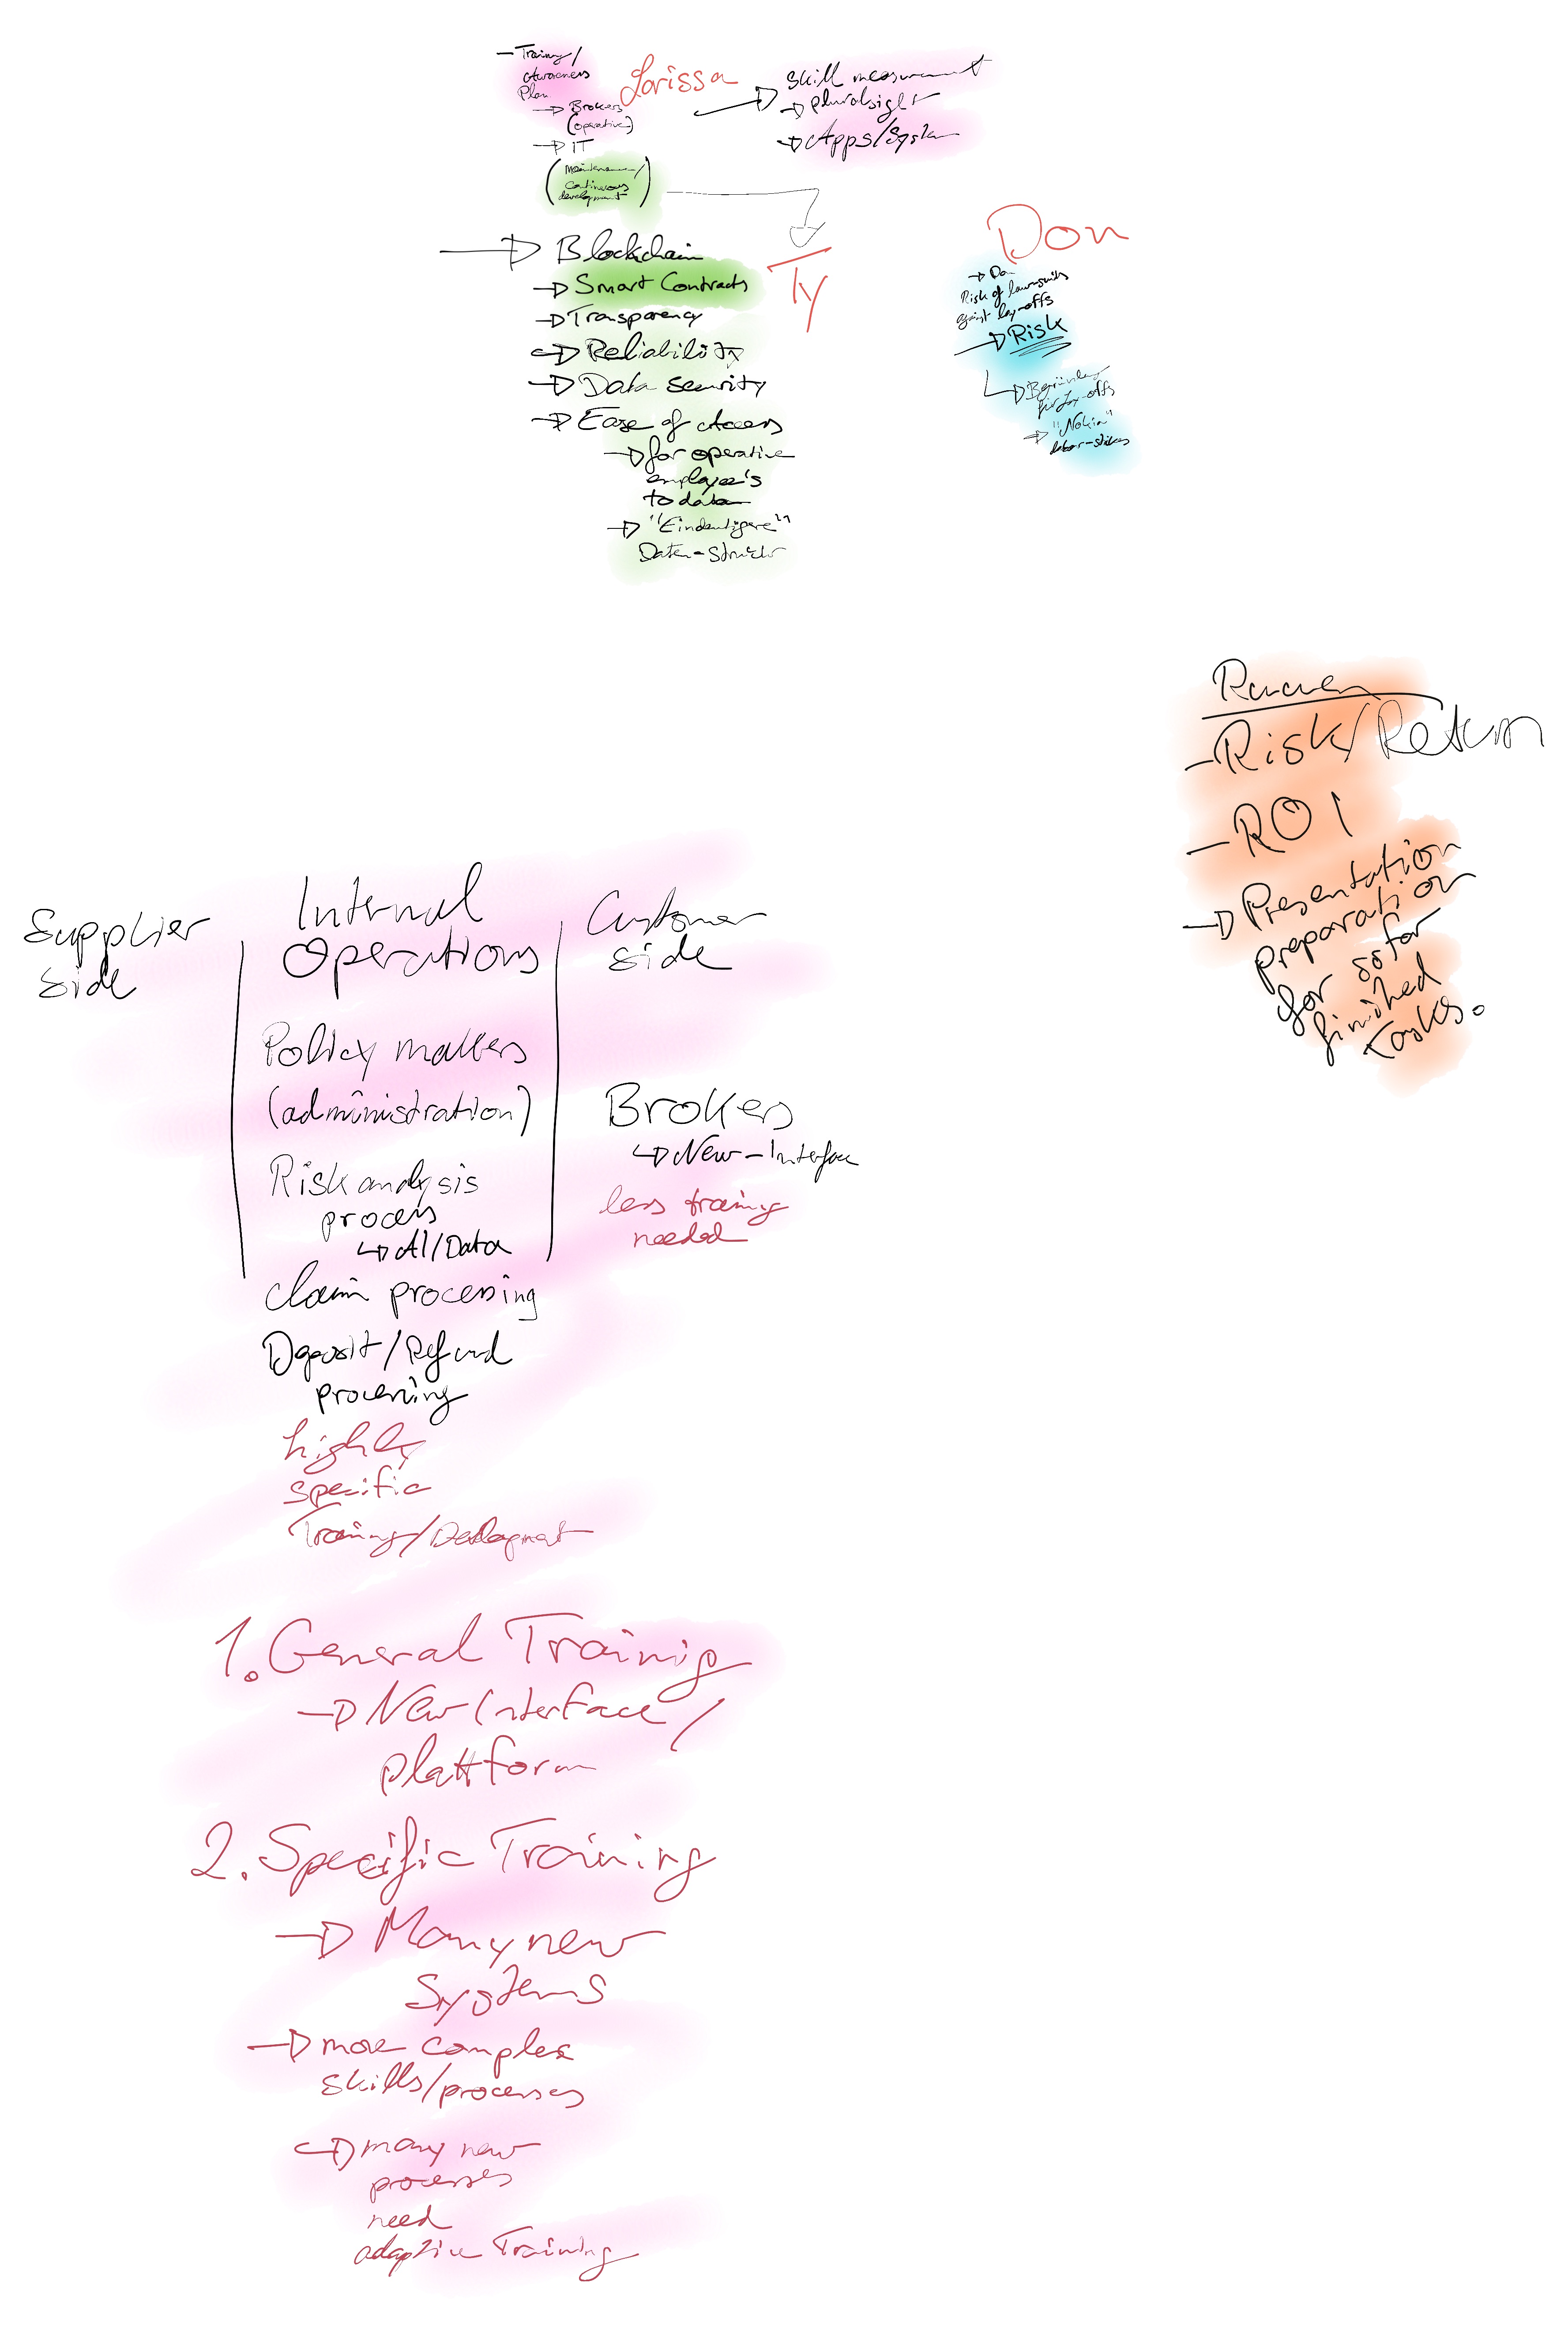 - Training/
Awareness
Plan
→ Brokers
(operative)
→ IT
(Maintenance/
continuous
development)
Larissa
→ Skill measurement
→ pluralsight
→ Apps/System
→ Blockchain
→ Smart Contracts
→ Transparency
→ Reliability
→ Data security
→ Ease of Access
→ for operative
employee's
to data
→ "Eindeutigere"
Daten-Struktur
Ty
Don
→ Do
Risk of lawsuits
against lay-offs
→ Risk
for Lay-offs
→ "Nokia"
labor-strikes
- Risk/Return
- ROI
→ Presentation
preparation
for so far
finished
Tasks.
Supplier
side
Internal
Operations
Policy makers
(administration)
Risk analysis
process
↳ AI/Data
claim processing
Deposit/Refund
processing
highly
specific
Training/Development
Customer
side
Brokers
↳ New-Interface
less training
needed
1. General Training
→ New Interface/
plattform
2. Specific Training
→ Many new
Systems
→ more complex
skills/processes
→ many new
processes
need
adaptive Training